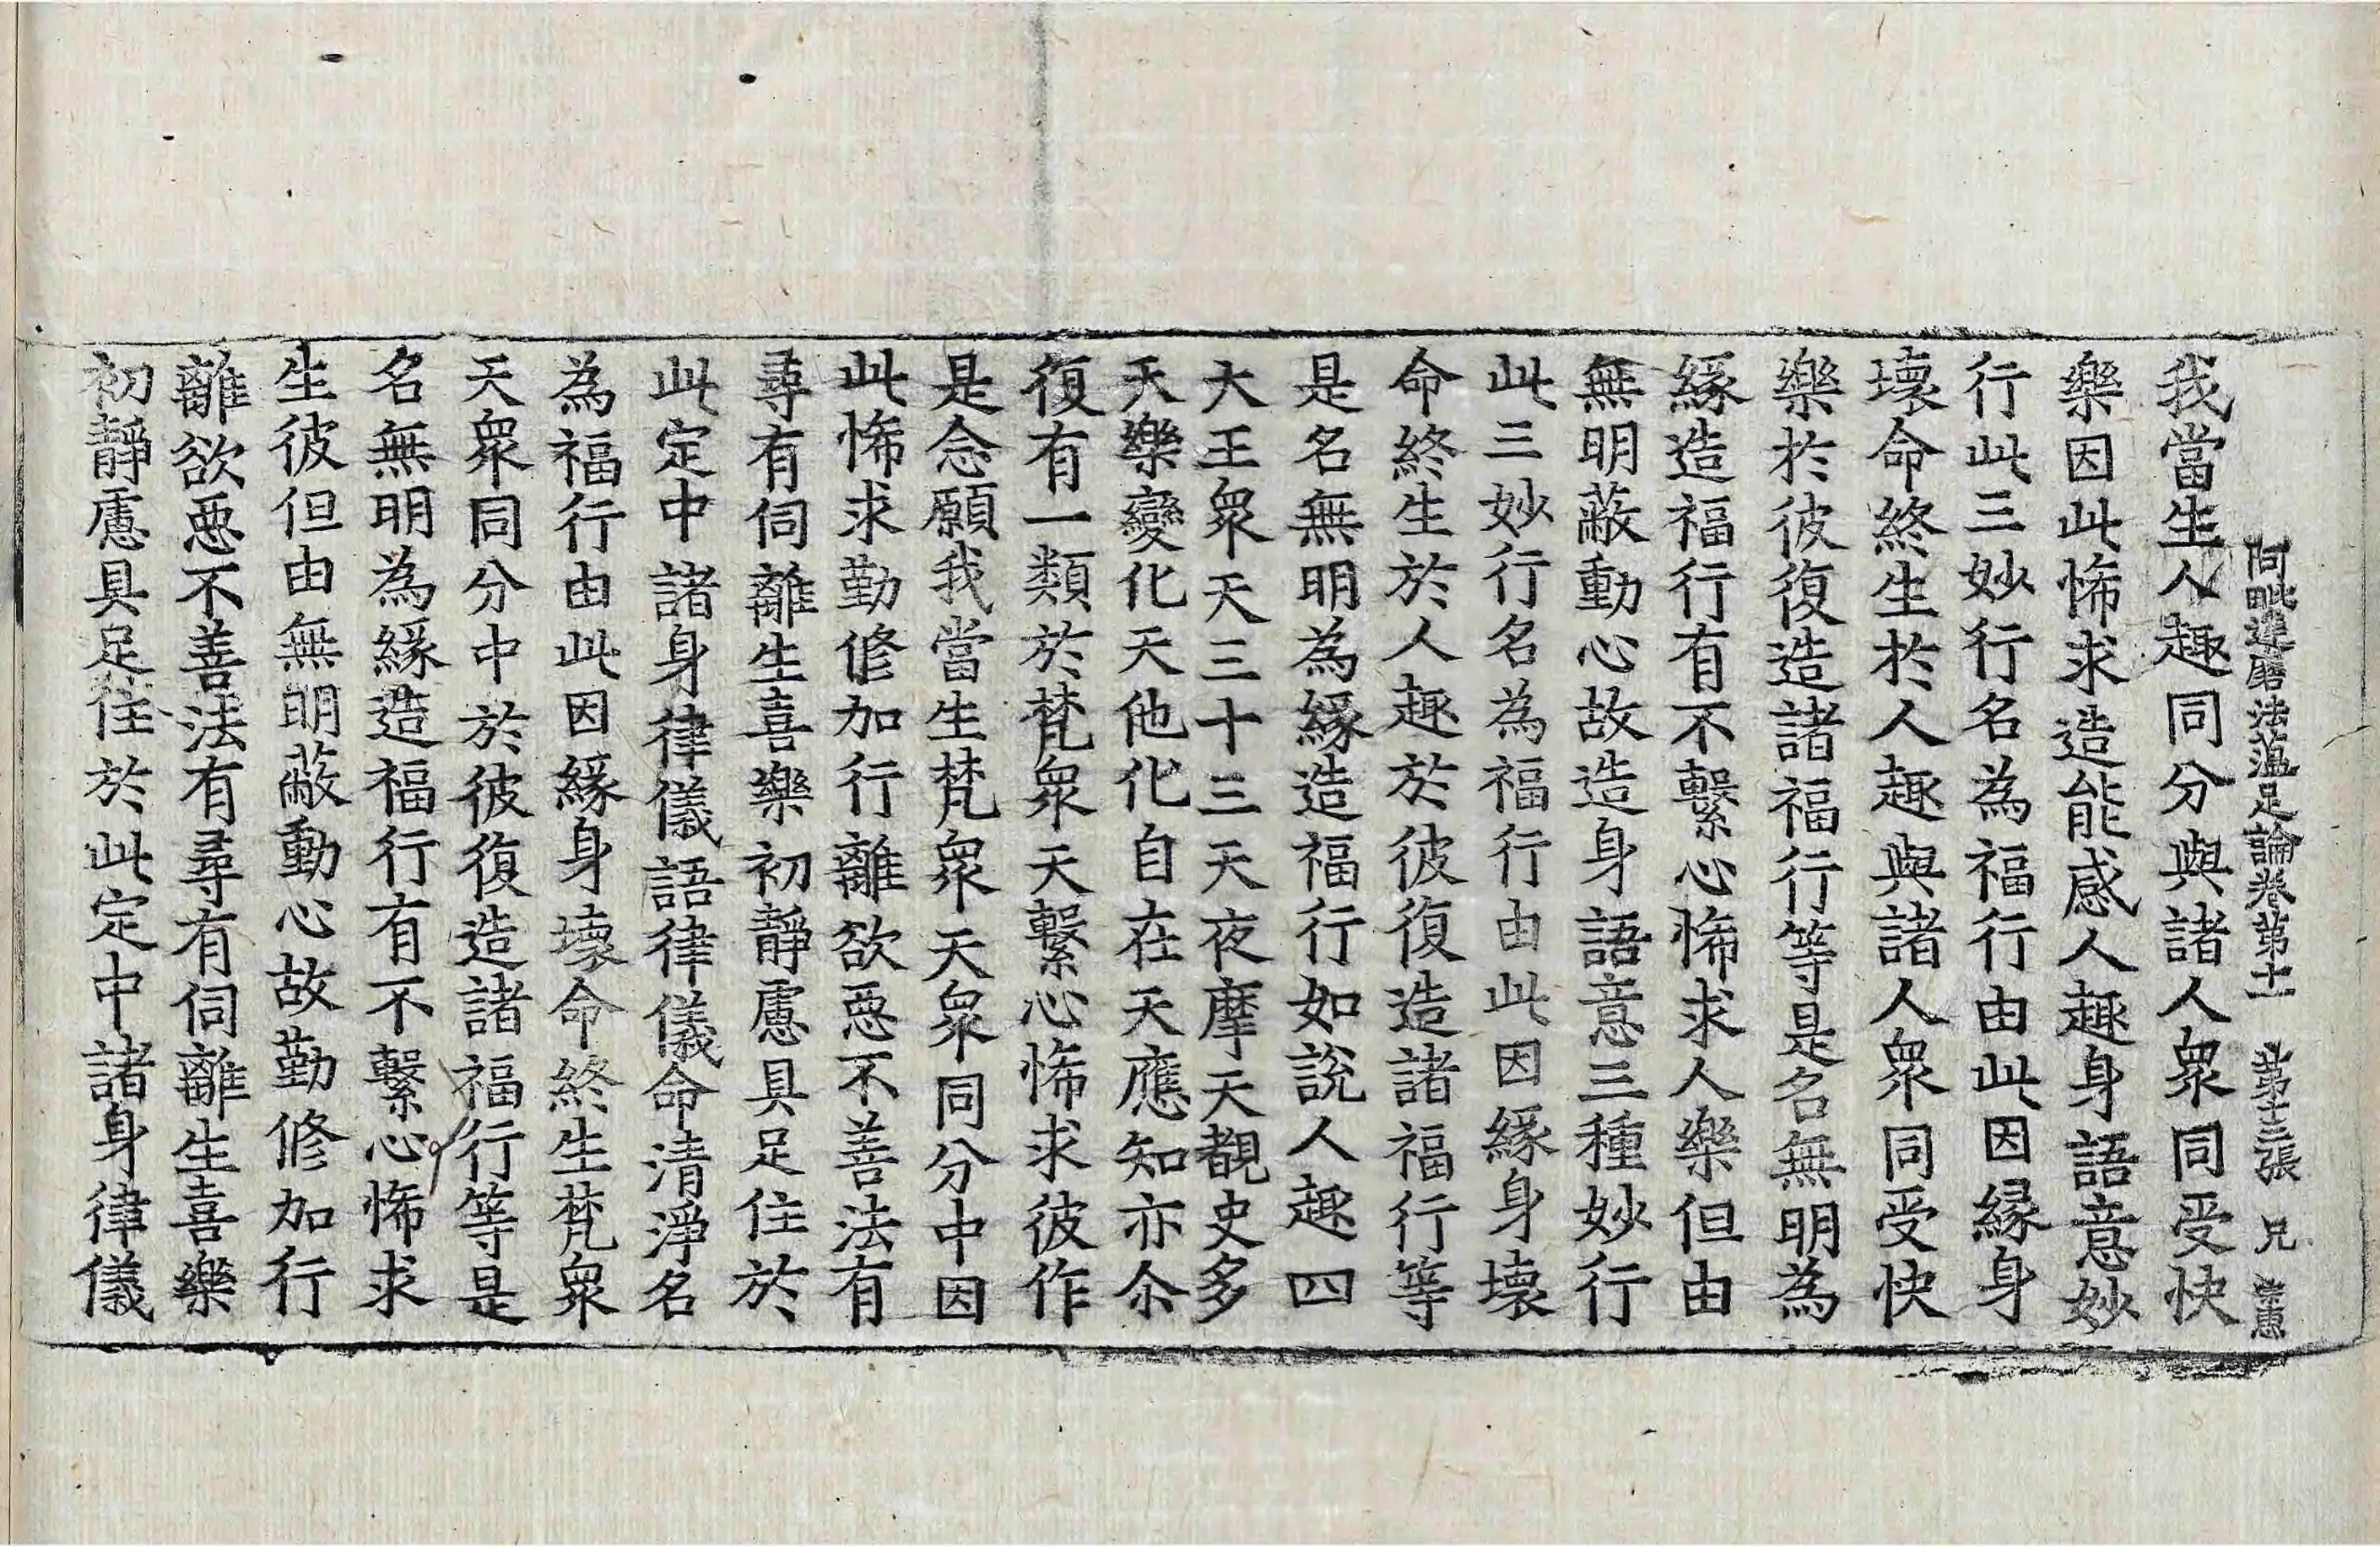 阿毗達磨法蘊足論卷第十一 第十三張 兄
我當生人趣同分與諸人衆同受快
樂因此悕求造能感人趣身語意妙
行此三妙行名為福行由此因緣身
壞命終生於人趣與諸人衆同受快
樂於彼復造諸福行等是名無明為
緣造福行有不繫心悕求人樂但由
無明蔽動心故造身語意三種妙行
此三妙行名為福行由此因緣身壞
命終生於人趣於彼復造諸福行等
是名無明為緣造福行如說人趣四
大王衆天三十三天夜摩天覩史多
天樂變化天他化自在天應知亦尒
復有一類於梵衆天繫心悕求彼作
是念願我當生梵衆天衆同分中因
此悕求勤修加行離欲惡不善法有
尋有伺離生喜樂初靜慮具足住於
此定中諸身律儀語律儀命清淨名
為福行由此因緣身壞命終生梵衆
天衆同分中於彼復造諸福行等是
名無明為緣造福行有不繫心悕求
生彼但由無明蔽動心故勤修加行
離欲惡不善法有尋有伺離生喜樂
初靜慮具足住於此定中諸身律儀